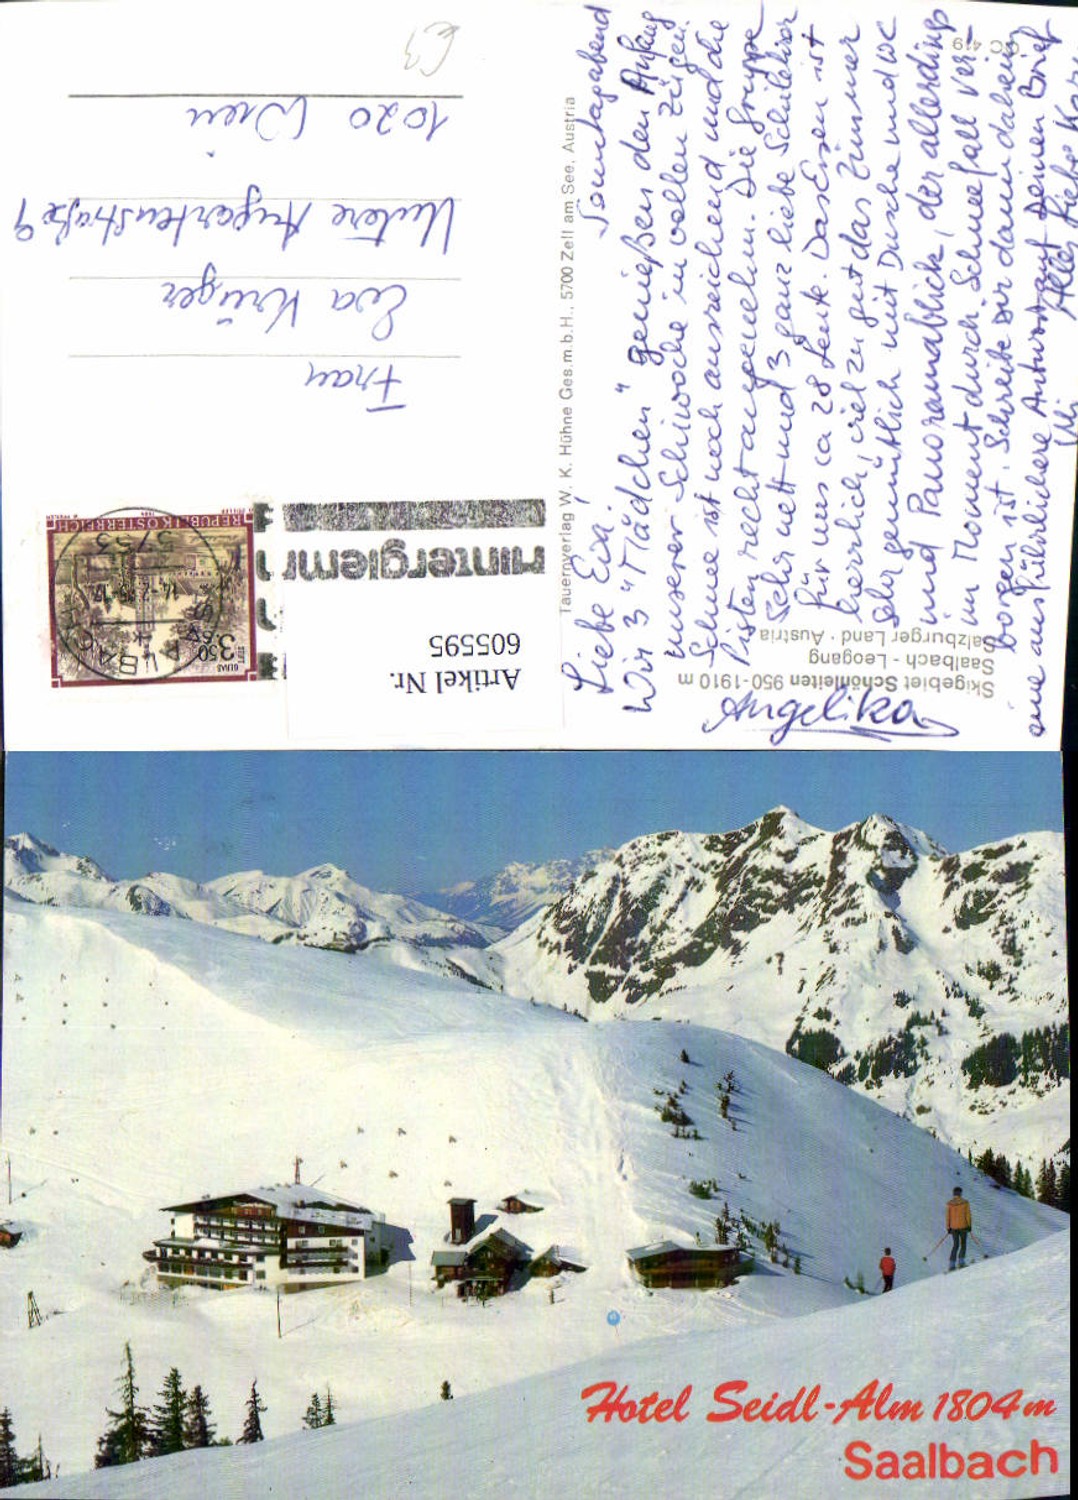 Sonntagabend
Liebe Eva!
Wir 3 "Mädchen" genießen den Anfang
unserer Schiwoche in vollen Zügen.
Schnee ist noch ausreichend und die
Pisten recht angenehm. Die Gruppe
sehr nett und 3 ganz liebe Schilehrer
für uns ca 28 Leute. Das Essen ist
herrlich, viel zu gut das Zimmer
sehr gemütlich mit Dusche und WC
und Panoramablick, der allerdings
im Moment durch Schneefall ver-
borgen ist. Schreibe Dir dann daheim
eine ausführlichere Antwort auf Deinen Brief
Alles Liebe
Angelika
Skigebiet Schönleiten 950-1910 m
Saalbach - Leogang
Salzburger Land · Austria
419
Tauernverlag W. K. Hühne Ges.m.b.H., 5700 Zell am See, Austria
Artikel Nr.
605595
hinterglemm
REPUBLIK ÖSTERREICH
3.50
STIFT
GERAS
5753
SAALBACH
Frau
Eva Krüger
Untere Augartenstraße 9
1020 Wien
€3
Hotel Seidl-Alm 1804 m
Saalbach